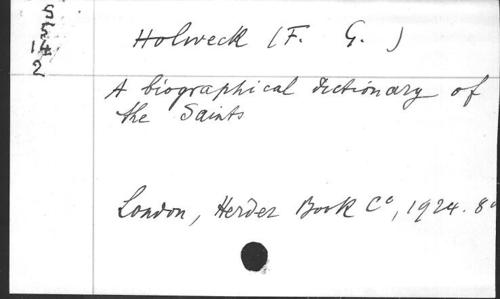 Holweck (F. G.)
A biographical dictionary of
the Saints
London, Herder Book Cº, 1924. 8º
14
2